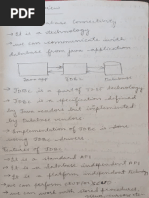 Database Connectivity
→ It is a technology
→ we can communicate with
database from java application
Java App
JDBC
Database
→ JDBC is a part of J2SE technology
→ JDBC is a specification defined
by Sun vendors and implemented
by Database vendors
→ Implementation of JDBC is
JDBC drivers
Features of JDBC:-
→ It is a standard API
→ It is database independent API
→ It is platform independent
→ we can perform CRUD
→ we can work with stored procedures